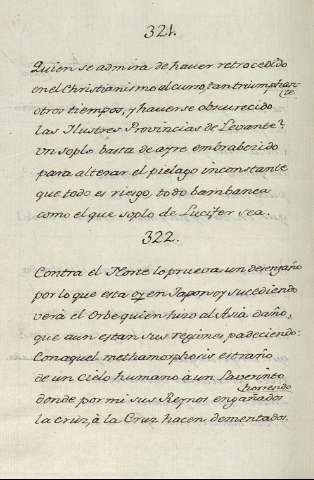 321.
Quien se admira de haver retrocedido
en el Christianismo al curso, tan triumphan-
te
otros tiempos, y haverse obscurecido
las Ilustres Provincias de Levante?
un soplo basta de ayre embrabezido
para alterar el pielago inconstante
que todo es riesgo, todo bambanea
como el que soplo de Lucifer sea.
322.
Contra el Norte lo prueva un desengaño
por lo que esta oy en Japon oy sucediendo
verà el Orbe quien hizo al Asia daño,
que aun estan sus regiones padeciendo:
Con aquel methamorphosis estraño
de un Cielo humano à un Laverinto
horrendo
donde por mi sus Reynos engañados
la Cruz, à la Cruz hacen dementados.